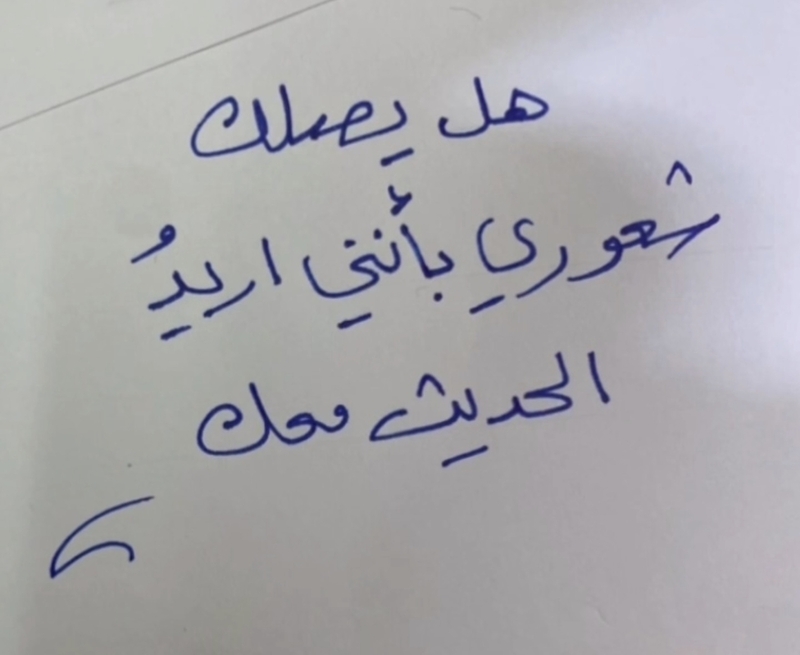 هل يصلك
شعوري بأنني اريدُ
الحديث معك